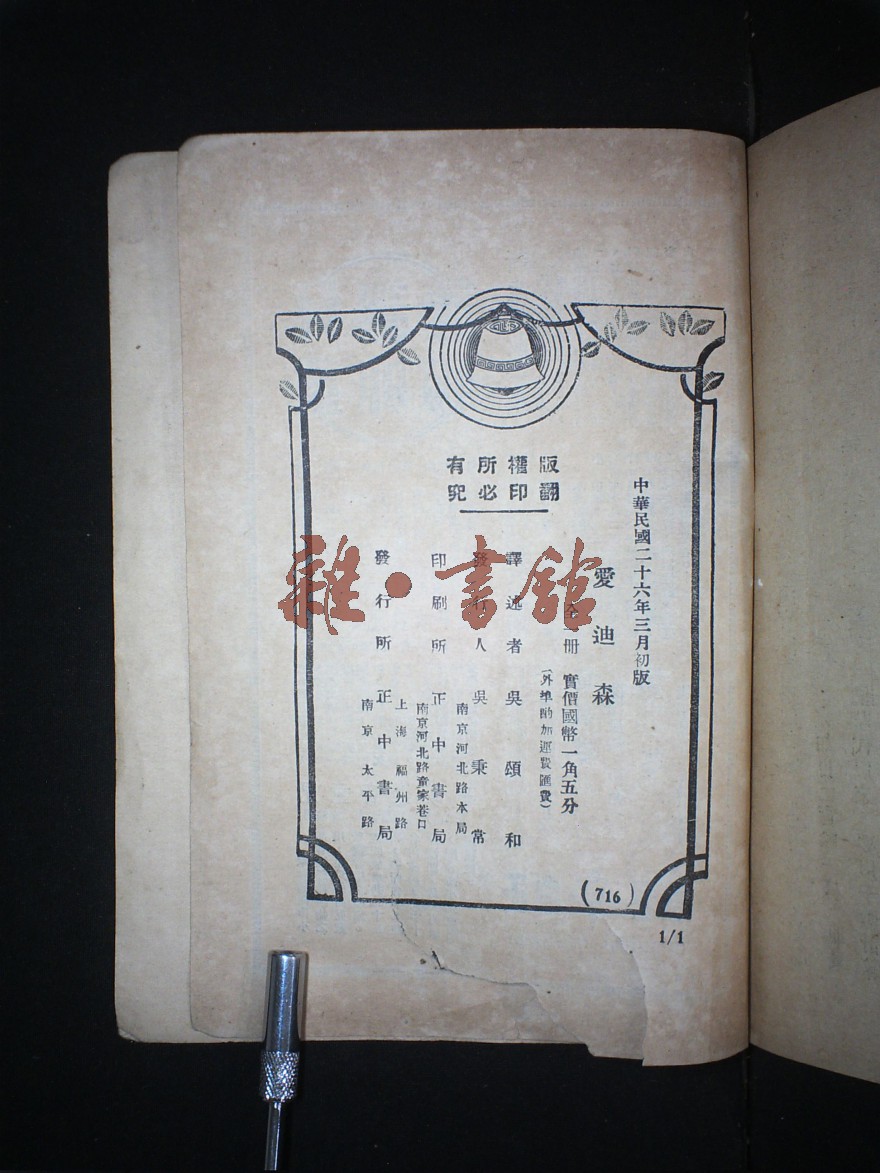 版權所有
翻印必究
中華民國二十六年三月初版
愛迪森
全一冊 實價國幣一角五分
(外埠酌加運費匯費)
譯述者 吳頌和
發行人 吳秉常
南京河北路本局
印刷所 正中書局
南京河北路童家巷口
發行所 正中書局
上海福州路
南京太平路
(716)
1/1
雜·書館